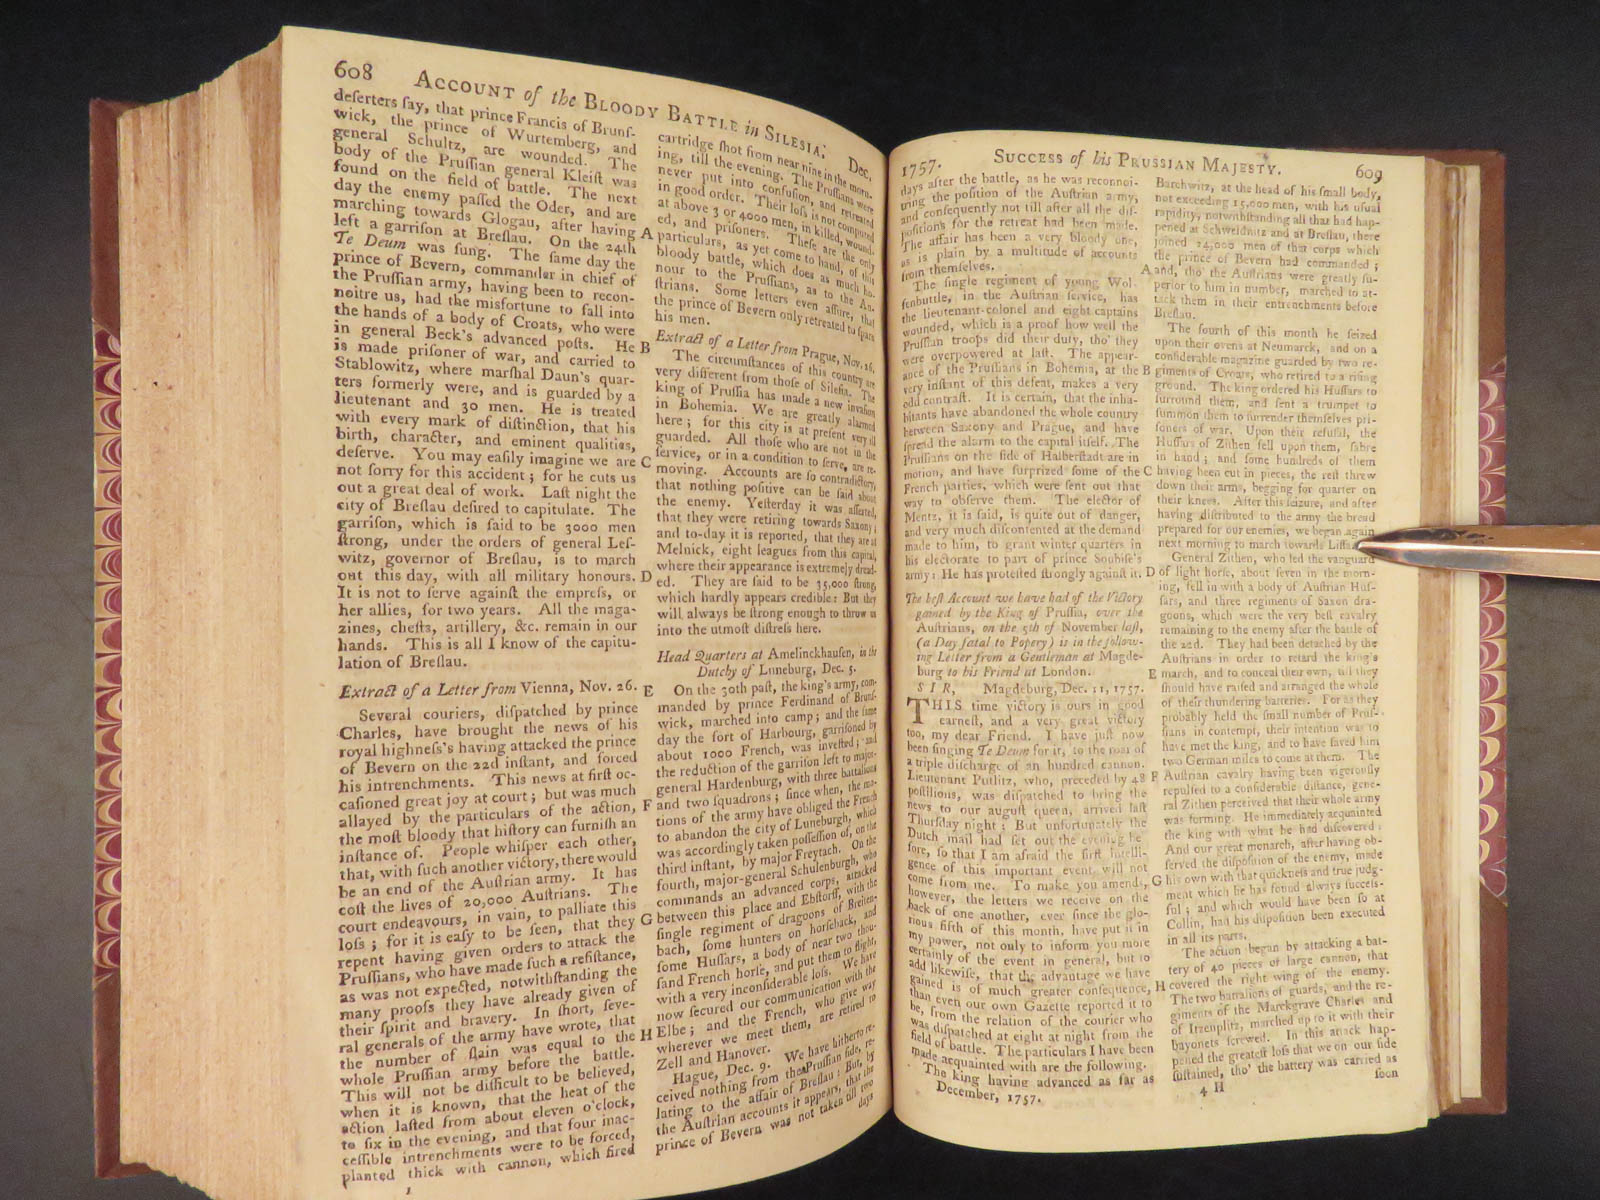 608 ACCOUNT of the BLOODY BATTLE in SILESIA. Dec.
deſerters ſay, that prince Francis of Brunſ-
wick, the prince of Wurtemberg, and
general Schultz, are wounded. The
body of the Pruſſian general Kleiſt was
found on the field of battle. The next
day the enemy paſſed the Oder, and are
marching towards Glogau, after having
left a garriſon at Breſlau. On the 24th
Te Deum was ſung. The ſame day the
prince of Bevern, commander in chief of
the Pruſſian army, having been to recon-
noitre us, had the misfortune to fall into
the hands of a body of Croats, who were
in general Beck's advanced poſts. He
is made priſoner of war, and carried to
Stablowitz, where marſhal Daun's quar-
ters formerly were, and is guarded by a
lieutenant and 30 men. He is treated
with every mark of diſtinction, that his
birth, character, and eminent qualities,
deſerve. You may eaſily imagine we are
not ſorry for this accident; for he cuts us
out a great deal of work. Laſt night the
city of Breſlau deſired to capitulate. The
garriſon, which is ſaid to be 3000 men
ſtrong, under the orders of general Leſ-
witz, governor of Breſlau, is to march
out this day, with all military honours.
It is not to ſerve againſt the empreſs, or
her allies, for two years. All the maga-
zines, cheſts, artillery, &c. remain in our
hands. This is all I know of the capitu-
lation of Breſlau.
Extract of a Letter from Vienna, Nov. 26.
Several couriers, diſpatched by prince
Charles, have brought the news of his
royal highneſs's having attacked the prince
of Bevern on the 22d inſtant, and forced
his intrenchments. This news at firſt oc-
caſioned great joy at court; but was much
allayed by the particulars of the action,
the moſt bloody that hiſtory can furniſh an
inſtance of. People whiſper each other,
that, with ſuch another victory, there would
be an end of the Auſtrian army. It has
coſt the lives of 20,000 Auſtrians. The
court endeavours, in vain, to palliate this
loſs; for it is eaſy to be ſeen, that they
repent having given orders to attack the
Pruſſians, who have made ſuch a reſiſtance,
as was not expected, notwithſtanding the
many proofs they have already given of
their ſpirit and bravery. In ſhort, ſeve-
ral generals of the army have wrote, that
the number of ſlain was equal to the
whole Pruſſian army before the battle.
This will not be difficult to be believed,
when it is known, that the heat of the
action laſted from about eleven o'clock,
to ſix in the evening, and that four inac-
ceſſible intrenchments were to be forced,
planted thick with cannon, which fired
1
A
B
C
D
E
F
G
H
cartridge ſhot from near nine in the morn-
ing, till the evening. The Pruſſians were
never put into confuſion, and retreated
in good order. Their loſs is not computed
at above 3 or 4000 men, in killed, wound-
ed, and priſoners. Theſe are the only
particulars, as yet come to hand, of this
bloody battle, which does as much ho-
nour to the Pruſſians, as to the Au-
ſtrians. Some letters even aſſure, that
the prince of Bevern only retreated to ſpare
his men.
Extract of a Letter from Prague, Nov. 26.
The circumſtances of this country are
very different from thoſe of Sileſia. The
king of Pruſſia has made a new invaſion
in Bohemia. We are greatly alarmed
here; for this city is at preſent very ill
guarded. All thoſe who are not in the
ſervice, or in a condition to ſerve, are re-
moving. Accounts are ſo contradictory,
that nothing poſitive can be ſaid about
the enemy. Yeſterday it was aſſerted,
that they were retiring towards Saxony;
and to-day it is reported, that they are at
Melnick, eight leagues from this capital,
where their appearance is extremely dread-
ed. They are ſaid to be 35,000 ſtrong,
which hardly appears credible: But they
will always be ſtrong enough to throw us
into the utmoſt diſtreſs here.
Head Quarters at Amelinckhauſen, in the
Dutchy of Luneburg, Dec. 5.
On the 30th paſt, the king's army, com-
manded by prince Ferdinand of Brunſ-
wick, marched into camp; and the ſame
day the fort of Harbourg, garriſoned by
about 1000 French, was inveſted; and
the reduction of the garriſon left to major-
general Hardenburg, with three battalions
and two ſquadrons; ſince when, the mo-
tions of the army have obliged the French
to abandon the city of Luneburgh, which
was accordingly taken poſſeſſion of, on the
third inſtant, by major Freytach. On the
fourth, major-general Schulenburgh, who
commands an advanced corps, attacked
between this place and Ebſtorff, with the
ſingle regiment of dragoons of Breiten-
bach, ſome hunters on horſeback, and
ſome Huſſars, a body of near two thou-
ſand French horſe, and put them to flight,
with a very inconſiderable loſs. We have
now ſecured our communication with the
Elbe; and the French, who give way
wherever we meet them, are retired to
Zell and Hanover.
Hague, Dec. 9. We have hitherto re-
ceived nothing from the Pruſſian ſide, re-
lating to the affair of Breſlau: But, by
the Auſtrian accounts it appears, that the
prince of Bevern was not taken till two
days
1757. SUCCESS of his PRUSSIAN MAJESTY. 609
days after the battle, as he was reconnoi-
tring the poſition of the Auſtrian army,
and conſequently not till after all the diſ-
poſitions for the retreat had been made.
The affair has been a very bloody one,
as is plain by a multitude of accounts
from themſelves.
The ſingle regiment of young Wol-
fenbuttle, in the Auſtrian ſervice, has
the lieutenant-colonel and eight captains
wounded, which is a proof how well the
Pruſſian troops did their duty, tho' they
were overpowered at laſt. The appear-
ance of the Pruſſians in Bohemia, at the
very inſtant of this defeat, makes a very
odd contraſt. It is certain, that the inha-
bitants have abandoned the whole country
between Saxony and Prague, and have
ſpread the alarm to the capital itſelf. The
Pruſſians on the ſide of Halberſtadt are in
motion, and have ſurprized ſome of the
French parties, which were ſent out that
way to obſerve them. The elector of
Mentz, it is ſaid, is quite out of danger,
and very much diſcontented at the demand
made to him, to grant winter quarters in
his electorate to part of prince Soubiſe's
army: He has proteſted ſtrongly againſt it.
The beſt Account we have had of the Victory
gained by the King of Pruſſia, over the
Auſtrians, on the 5th of November laſt,
(a Day fatal to Popery) is in the follow-
ing Letter from a Gentleman at Magde-
burg to his Friend at London.
SIR, Magdeburg, Dec. 11, 1757.
THIS time victory is ours in good
earneſt, and a very great victory
too, my dear Friend. I have juſt now
been ſinging Te Deum for it, to the roar of
a triple diſcharge of an hundred cannon.
Lieutenant Putlitz, who, preceded by 48
poſtilions, was diſpatched to bring the
news to our auguſt queen, arrived laſt
Thurſday night; But unfortunately the
Dutch mail had ſet out the evening be-
fore, ſo that I am afraid the firſt intelli-
gence of this important event will not
come from me. To make you amends,
however, the letters we receive on the
back of one another, ever ſince the glo-
rious fifth of this month, have put it in
my power, not only to inform you more
certainly of the event in general, but to
add likewiſe, that the advantage we have
gained is of much greater conſequence,
than even our own Gazette reported it to
be, from the relation of the courier who
was diſpatched at eight at night from the
field of battle. The particulars I have been
made acquainted with are the following.
The king having advanced as far as
December, 1757.
A
B
C
D
E
F
G
H
Barchwitz, at the head of his ſmall body,
not exceeding 15,000 men, with his uſual
rapidity, notwithſtanding all that had hap-
pened at Schweidnitz and at Breſlau, there
joined 24,000 men of that corps which
the prince of Bevern had commanded;
and, tho' the Auſtrians were greatly ſu-
perior to him in number, marched to at-
tack them in their entrenchments before
Breſlau.
The fourth of this month he ſeized
upon their ovens at Neumarck, and on a
conſiderable magazine guarded by two re-
giments of Croats, who retired to a riſing
ground. The king ordered his Huſſars to
ſurround them, and ſent a trumpet to
ſummon them to ſurrender themſelves pri-
ſoners of war. Upon their refuſal, the
Huſſars of Zithen fell upon them, ſabre
in hand; and ſome hundreds of them
having been cut in pieces, the reſt threw
down their arms, begging for quarter on
their knees. After this ſeizure, and after
having diſtributed to the army the bread
prepared for our enemies, we began again
next morning to march towards
General Zithen, who led the vanguard
of light horſe, about ſeven in the morn-
ing, fell in with a body of Auſtrian Huſ-
ſars, and three regiments of Saxon dra-
goons, which were the very beſt cavalry
remaining to the enemy after the battle of
the 22d. They had been detached by the
Auſtrians in order to retard the king's
march, and to conceal their own, till they
ſhould have raiſed and arranged the whole
of their thundering batteries. For as they
probably held the ſmall number of Pruſ-
ſians in contempt, their intention was to
have met the king, and to have ſaved him
two German miles to come at them. The
Auſtrian cavalry having been vigorouſly
repulſed to a conſiderable diſtance, gene-
ral Zithen perceived that their whole army
was forming. He immediately acquainted
the king with what he had diſcovered:
And our great monarch, after having ob-
ſerved the diſpoſition of the enemy, made
his own with that quickneſs and true judg-
ment which he has found always ſucceſs-
ful; and which would have been ſo at
Collin, had his diſpoſition been executed
in all its parts.
The action began by attacking a bat-
tery of 40 pieces of large cannon, that
covered the right wing of the enemy.
The two battalions of guards, and the re-
giments of the Marckgrave Charles and
of Itzenplitz, marched up to it with their
bayonets ſcrewed. In this attack hap-
pened the greateſt loſs that we on our ſide
ſuſtained, tho' the battery was carried as
4 H ſoon